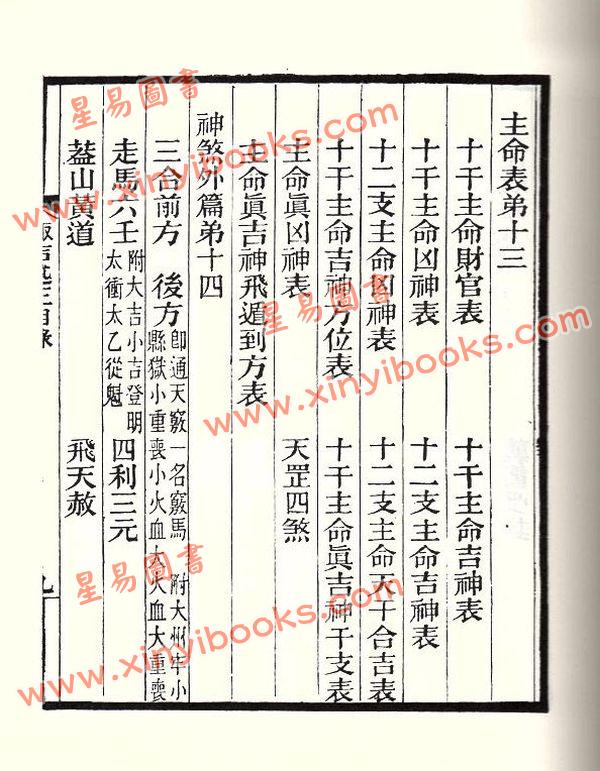 主命表弟十三
十干主命財官表 十干主命吉神表
十干主命凶神表 十二支主命吉神表
十二支主命凶神表 十二支主命天干合吉表
十干主命吉神方位表 十干主命眞吉神干支表
主命眞凶神表 天罡四煞
主命眞吉神飛遁到方表
神煞外篇弟十四
三台前方 後方 卽通天竅一名竅馬 附大州牢小縣獄小重喪小火血大火血大重喪
走馬六壬 附大吉小吉登明太衝太乙從魁 四利三元
葢山黃道 飛天赦
目錄
九
星易圖書
www.xinyibooks.com
星易圖書
www.xinyibooks.com
星易圖書
www.xinyibooks.com